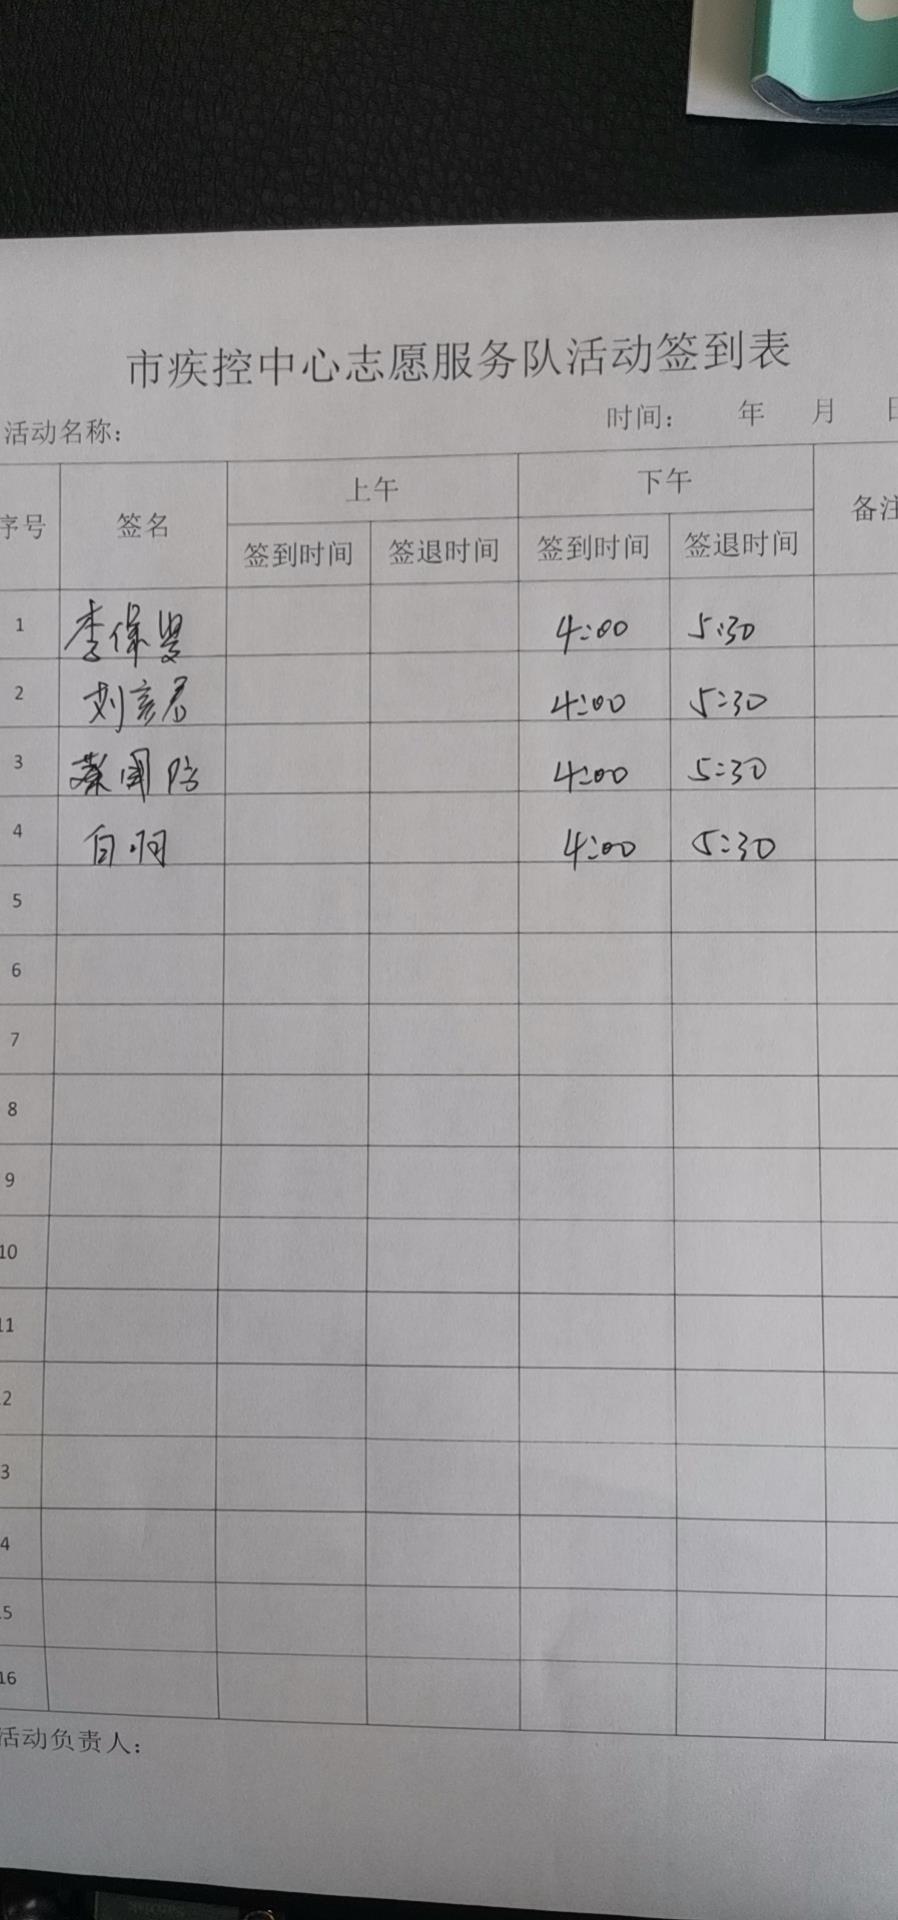 市疾控中心志愿服务队活动签到表
活动名称: 时间: 年 月 日
序号 签名 上午 下午 备注
签到时间 签退时间 签到时间 签退时间
1 李保 4:00 5:30
2 刘彦君 4:00 5:30
3 蔡国防 4:00 5:30
4 白羽 4:00 5:30
5
6
7
8
9
10
11
12
13
14
15
16
活动负责人: